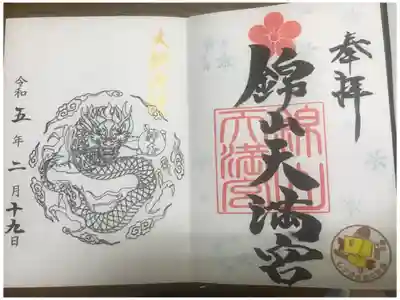 奉拝
錦山天満宮
錦山
天満宮
令和五年二月十九日